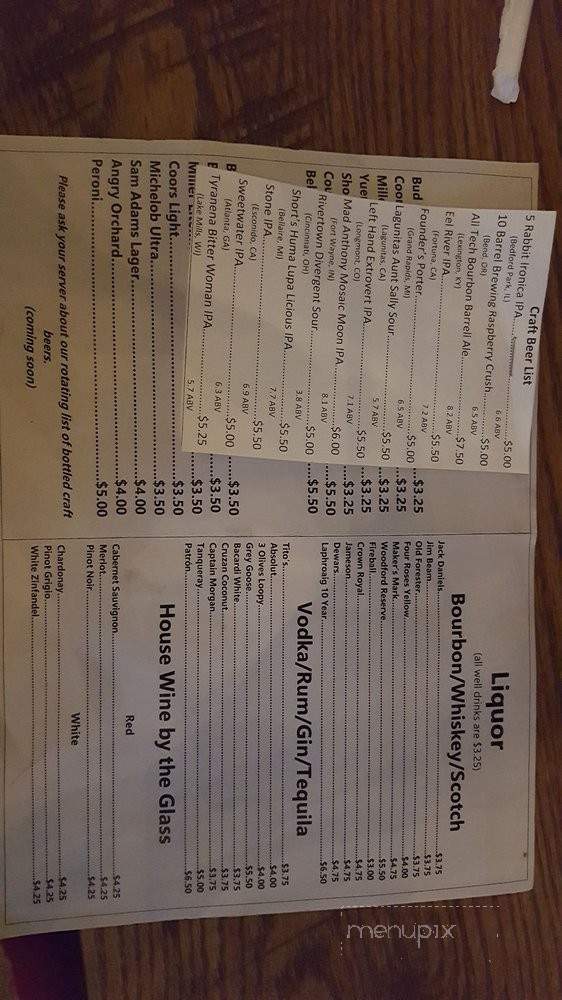 Craft Beer List
5 Rabbit Ironica IPA.............$5.00
(Bedford Park, IL) 6.6 ABV
10 Barrel Brewing Raspberry Crush.............$5.00
(Bend, OR) 6.5 ABV
All Tech Bourbon Barrell Ale.............$7.50
(Lexington, KY) 8.2 ABV
Eel River IPA.............$5.50
(Fortuna, CA) 7.2 ABV
Founder's Porter.............$5.00
(Grand Rapids, MI) 6.5 ABV
Lagunitas Aunt Sally Sour.............$5.50
(Lagunitas, CA) 5.7 ABV
Left Hand Extrovert IPA.............$5.50
(Longmont, CO) 7.1 ABV
Mad Anthony Mosaic Moon IPA.............$6.00
(Fort Wayne, IN) 8.1 ABV
Rivertown Divergent Sour.............$5.00
(Cincinnati, OH) 3.8 ABV
Short's Huma Lupa Licious IPA.............$5.50
(Bellaire, MI) 7.7 ABV
Stone IPA.............$5.50
(Escondido, CA) 6.9 ABV
Sweetwater IPA.............$5.00
(Atlanta, GA) 6.3 ABV
Tyranena Bitter Woman IPA.............$5.25
(Lake Mills, WI) 5.7 ABV
Bud ...$3.25
Coor ...$3.25
Mill ...$3.25
Yue ...$3.25
Sho ...$5.50
Bel ...$5.50
...$3.50
...$3.50
Miller ...$3.50
Coors Light.............$3.50
Michelob Ultra.............$3.50
Sam Adams Lager.............$4.00
Angry Orchard.............$4.00
Peroni.............$5.00
Please ask your server about our rotating list of bottled craft
beers.
(coming soon)
Liquor
(all well drinks are $3.25)
Bourbon/Whiskey/Scotch
Jack Daniels.............$3.75
Jim Beam.............$3.75
Old Forester.............$3.75
Four Roses Yellow.............$4.00
Maker's Mark.............$4.75
Woodford Reserve.............$5.50
Fireball.............$3.00
Crown Royal.............$4.75
Jameson.............$4.75
Dewars.............$4.75
Laphroaig 10 Year.............$6.50
Vodka/Rum/Gin/Tequila
Tito's.............$3.75
Absolut.............$4.00
3 Olives Loopy.............$4.00
Grey Goose.............$5.50
Bacardi White.............$3.75
Cruzan Coconut.............$3.75
Captain Morgan.............$3.75
Tanqueray.............$5.00
Patrón.............$6.50
House Wine by the Glass
Red
Cabernet Sauvignon.............$4.25
Merlot.............$4.25
Pinot Noir.............$4.25
White
Chardonay.............$4.25
Pinot Grigio.............$4.25
White Zinfandel.............$4.25
menupix